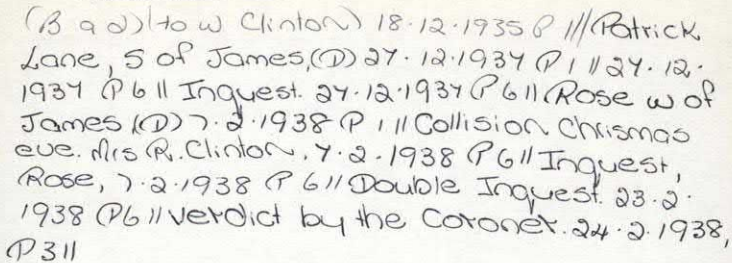 (B a d) (to W Clinton) 18.12.1935 P 1// Patrick
Lane, S of James, (D) 27.12.1937 P 1 // 27.12.
1937 P 6 // Inquest. 27.12.1937 P 6 // Rose w of
James (D) 7.2.1938 P 1 // Collision Chrismas
eve. Mrs R. Clinton. 7.2.1938 P 6 // Inquest,
Rose, 7.2.1938 P 6 // Double Inquest. 23.2.
1938 P 6 // Verdict by the Coroner. 24.2.1938,
P 3 //